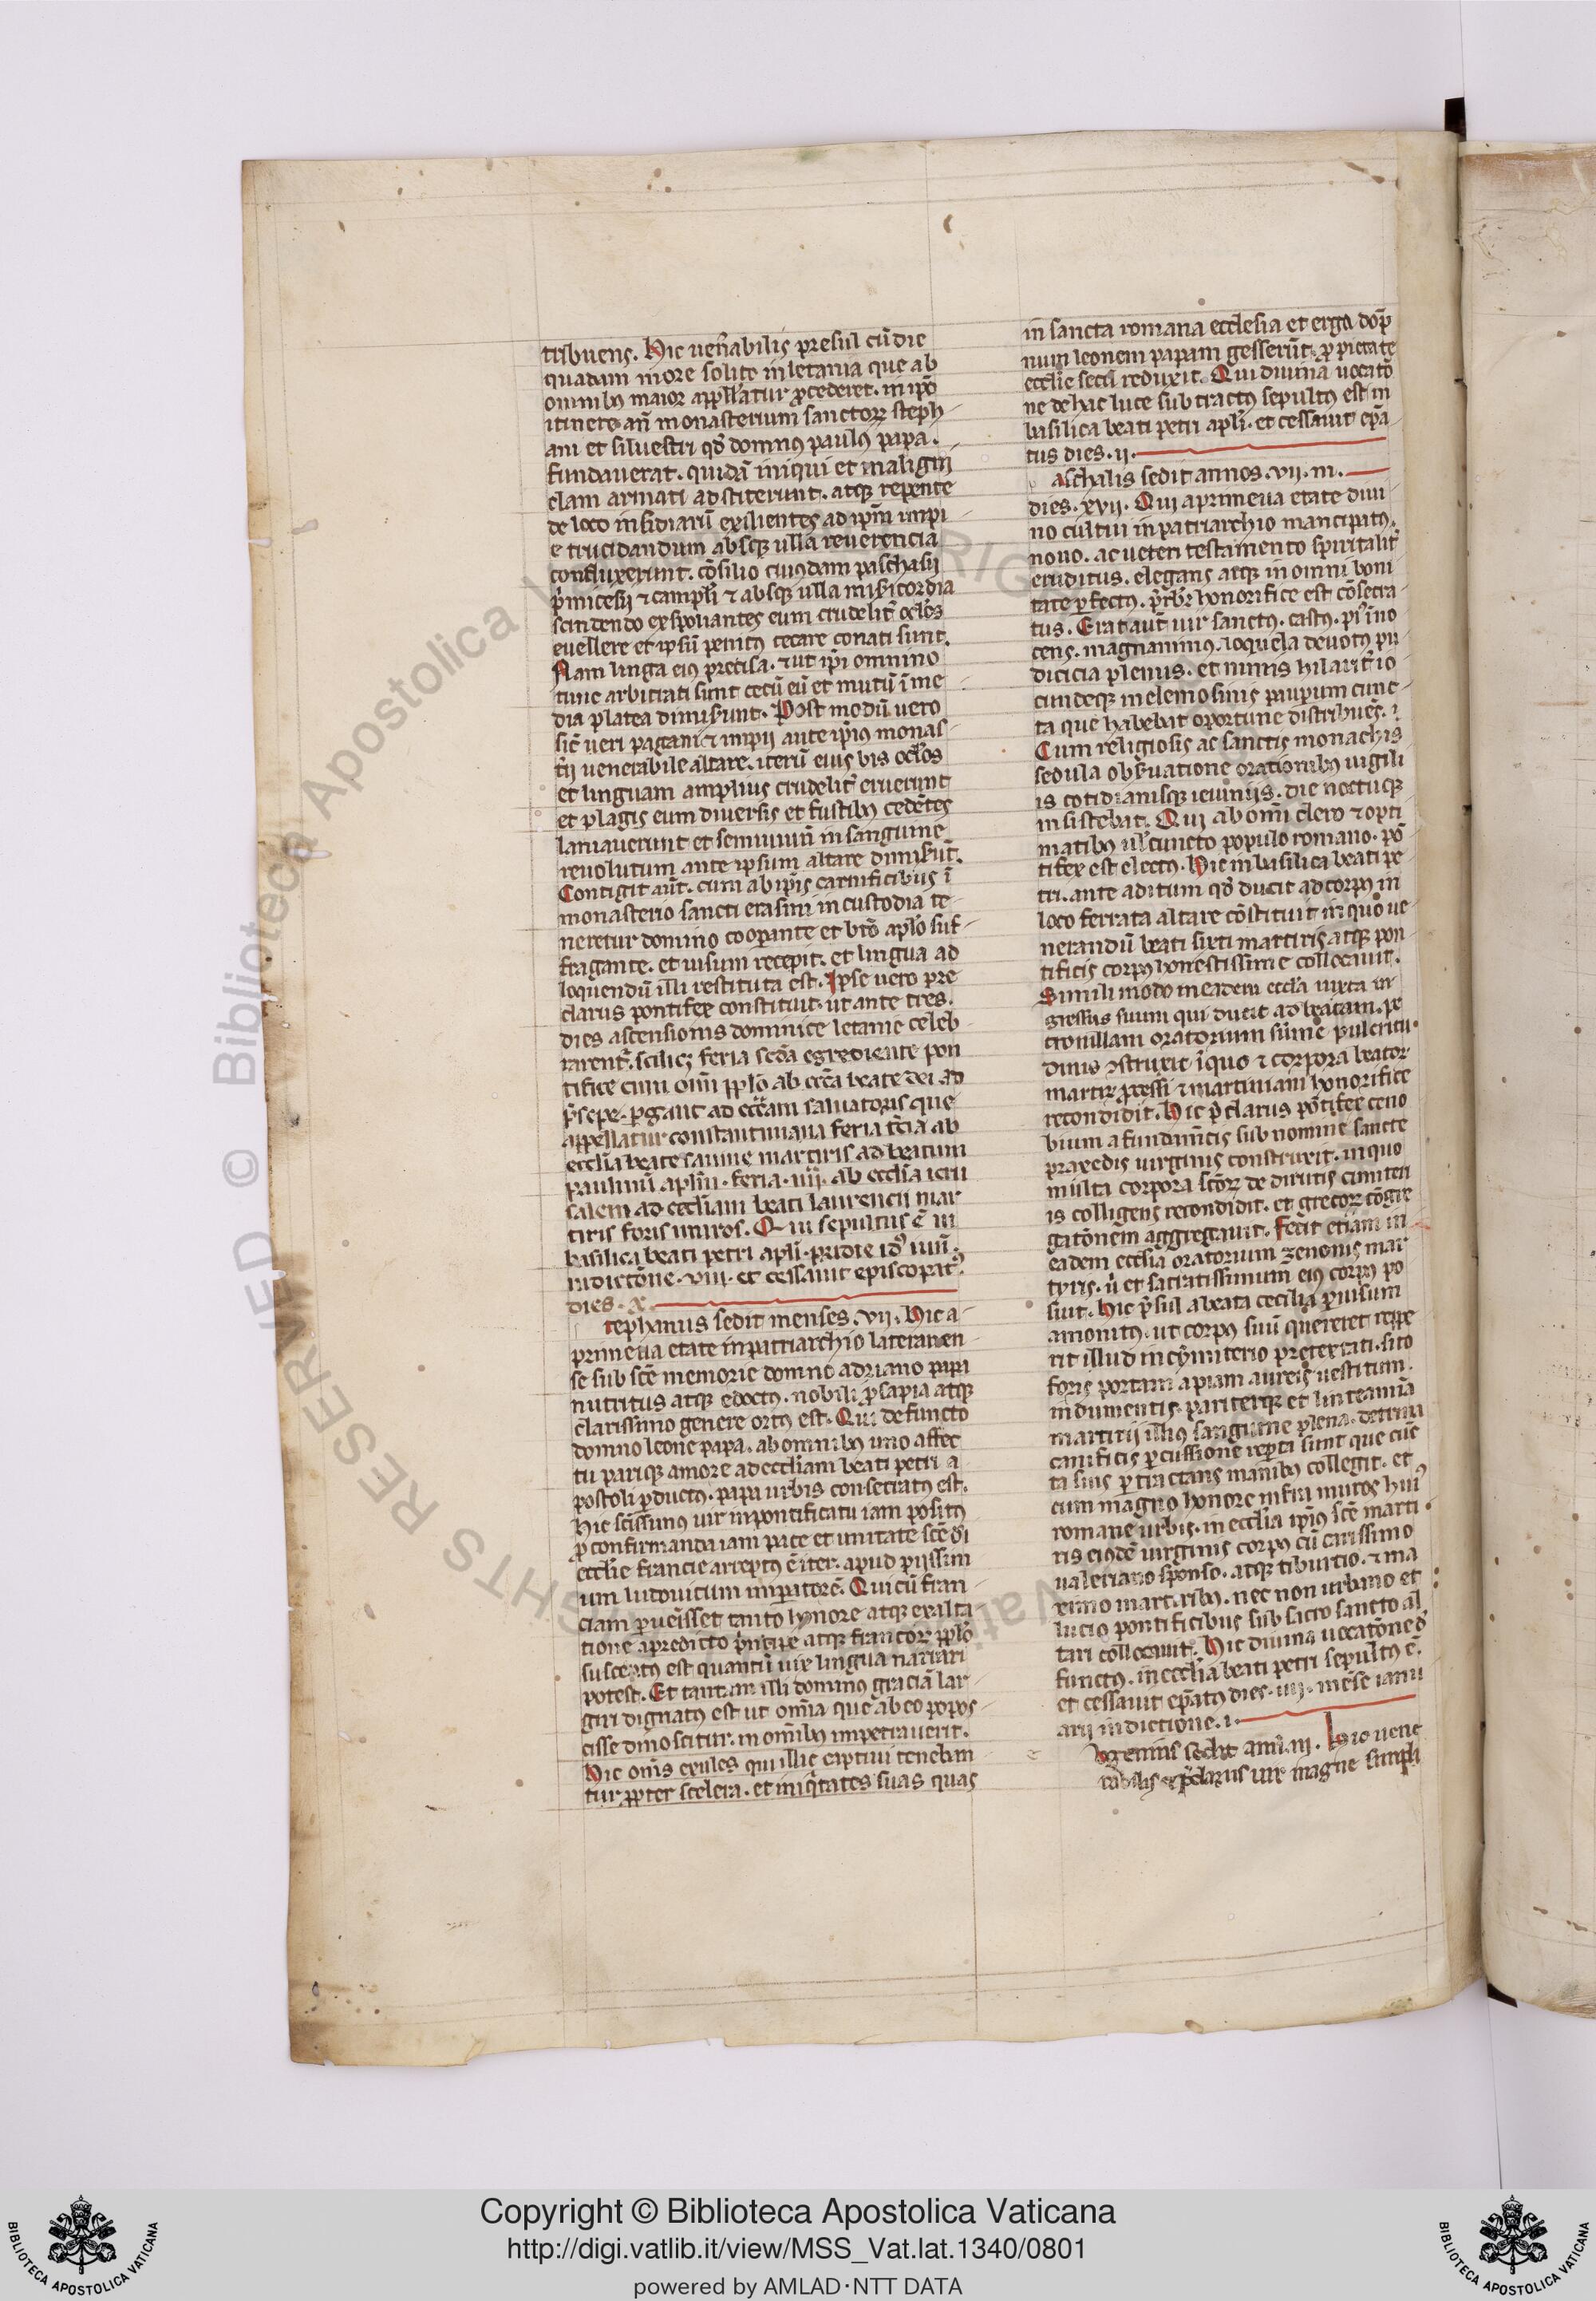 tribuens. Hic uen̄abilis presul cū die
quadam more solito in letania que ab
omnibꝰ maior appellatur ꝓcederet. in ip̄o
itinere an̄ monasterium sanctoꝝ steph
ani et siluestri qd̄ domnꝰ paulꝰ papa.
fundauerat. quidā iniqui et maligni
clam armati adstiterunt. atqꝫ repente
de loco insidiarū exilientes ad ip̄m impi
e trucidandum absqꝫ ulla reuerencia
confluxerunt. cōsilio cuiusdam paschasii
p̄micerii ⁊ campli ⁊ absqꝫ ulla misericordia
scindendo exspoliantes eum crudelit̄ oc̄los
euellere et ip̄sū penitꝰ cecare conati sunt.
Nam linga eiꝰ precisa. ⁊ ut ip̄i omnino
tunc arbitrati sunt cecū eū et mutū ī me
dia platea dimiserunt. Post modū uero
sic̄ ueri pagani ⁊ impii ante ip̄ius monas
t̄ii uenerabile altare. iterū eius bis oc̄los
et linguam amplius crudelit̄ eruerunt
et plagis eum diuersis et fustibꝰ cedētes
laniauerunt et semiuiuū in sanguine
reuolutum ante ipsum altare dimiserūt.
Contigit aūt. cum ab ip̄is carnificibus ī
monasterio sancti erasmi in custodia te
neretur domino cooꝑante et btō ap̄lo suf
fragante. et uisum recepit. et lingua ad
loquendū illi restituta est. Ipse uero pre
clarus pontifex constituit. ut ante tres.
dies ascensionis dominice letanie celeb
rarent̄. scilicꝫ feria secd̄a egrediente pon
tifice cum om̄i pp̄lo ab ecc̄a beate dei ad
p̄sepe. ꝑgant ad ecc̄am saluatoris que
appellatur constantiniana feria t̄cia ab
ecclīa beate sauine martiris ad beatum
paulum ap̄lm̄. feria. iiii. ab ecclīa ieru
salem ad ecclīam beati laurencii mar
tiris foris muros. Qui sepultus ē in
basilica beati petri ap̄li. pridie idꝰ iun̄.
indictōne. viii. et cessauit episcopatꝰ.
dies. x.
tephanus sedit menses. vii. Hic a
primeua etate in patriarchio lateranen
se sub sc̄e memorie domno adriano papa
nutritus atqꝫ edoctꝰ. nobili ꝓsapia atqꝫ
clarissimo genere ortꝰ est. Qui defuncto
domno leone papa. ab omnibꝰ uno affec
tu pariqꝫ amore ad ecclīam beati petri a
postoli ꝑductꝰ. papa urbis consecratꝰ est.
Hic sc̄issimꝰ uir in pontificatu iam positꝰ
ꝓ confirmanda iam pace et unitate sc̄e dī
ecclīe francie arreptꝰ ē iter. apud piissim
um ludouicum imꝑatorē. Qui cū fran
ciam ꝑueīsset tanto honore atqꝫ exalta
tione a predicto p̄ncipe atqꝫ francoꝝ pp̄lo
susceptꝰ est quantū uix lingua narrari
potest. Et tantam illi dominꝰ graciā lar
giri dignatꝰ est ut om̄ia que ab eo popos
cisse dinoscitur. in om̄ibꝰ impetrauerit.
Hic om̄s exules qui illic captiui teneban
tur ꝓpter scelera. et iniq̄tates suas quas
in sancta romana ecclesia et erga dop̄
num leonem papam gesserūt. ꝓ pietate
ecclīe secū reduxit. Qui diuina uocatō
ne de hac luce subtractꝰ sepultꝰ est in
basilica beati petri ap̄li. et cessauit ep̄a
tus dies. ii.
aschalis sedit annos. vii. m.
dies. xvii. Qui a primeua etate diui
no cultui in patriarchio mancipatꝰ.
nouo. ac ueteri testamento spiritalit̄
eruditus. elegans atqꝫ in omni boni
tate ꝑfectꝰ. p̄rbr̄ honorifice est cōsecra
tus. Erat aut̄ uir sanctꝰ. castꝰ. piꝰ īno
cens. magnanimꝰ. loquela deuotꝰ pu
dicicia plenus. et nimis hilarit̄ io
cundeqꝫ in elemosinis pauꝑum cunc
ta que habebat oportune distribuēs.
Cum religiosis ac sanctis monachis
sedula obseruatione orationibꝰ uigili
is cotidianisqꝫ ieiuniis. die noctuqꝫ
insistebat. Qui ab om̄i clero ⁊ opti
matibꝰ ul̄ cuncto populo romano. pō
tifex est electꝰ. Hic in basilica beati pe
tri. ante aditum qd̄ ducit ad corpꝰ in
loco ferrata altare cōstituit in quo ue
nerandū beati sixti martiris atqꝫ pon
tificis corpꝰ honestissime collocauit.
Simili modo in eadem eccl̄a iuxta in
gressus suum qui ducit ad beatam. pe
tronillam oratorium sūme pulcritu
dinis ꝯstruxit ī quo ⁊ corpora beator̄
martiꝝ ꝓcessi ⁊ martiniani honorifice
recondidit. Hic p̄clarus pōtifex ceno
bium a fundam̄tis sub nomine sancte
praxedis uirginis construxit. in quo
multa corpora sc̄oꝝ de dirutis cimiteri
is colligens recondidit. et grecoꝝ cōgre
gatōnem aggregauit. Fecit etiam in
eadem ecclsia oratorium zenonis mar
tyris. ū et sacratissimum eiꝰ corpꝰ po
suit. Hic p̄sul a beata cecilia ꝑ uisum
amonitꝰ. ut corpꝰ suū quereret reppe
rit illud in cȳmiterio pretextati. sito
foris portam apiam aureis uestitum.
indumentis. pariterqꝫ et linteamīa
martirii illiꝰ sanguine plena. de trina
carnificis ꝑcussione reꝑta sunt que cūc
ta suis ꝑtractans manibꝰ collegit. et
cum magno honore infra muros huiꝰ
romane urbis. in ecclīa ip̄iꝰ sc̄e marti
ris eiꝰdē uirginis corpꝰ cū carissimo
ualeriano sponso. atqꝫ tiburtio. ⁊ ma
ximo martiribꝰ. nec non urbano et
lucio pontificibus sub sacro sancto al
tari collocauit. Hic diuina uocatōne d̄
functꝰ. in ecclīa beati petri sepultꝰ ē.
et cessauit ep̄atꝰ dies. iiii. mēse ianu
arii indictione. i.
ugenius sedit ann̄. iii. Hic uene
rabilis et p̄clarus uir magne simpli
Copyright © Biblioteca Apostolica Vaticana
http://digi.vatlib.it/view/MSS_Vat.lat.1340/0801
powered by AMLAD·NTT DATA